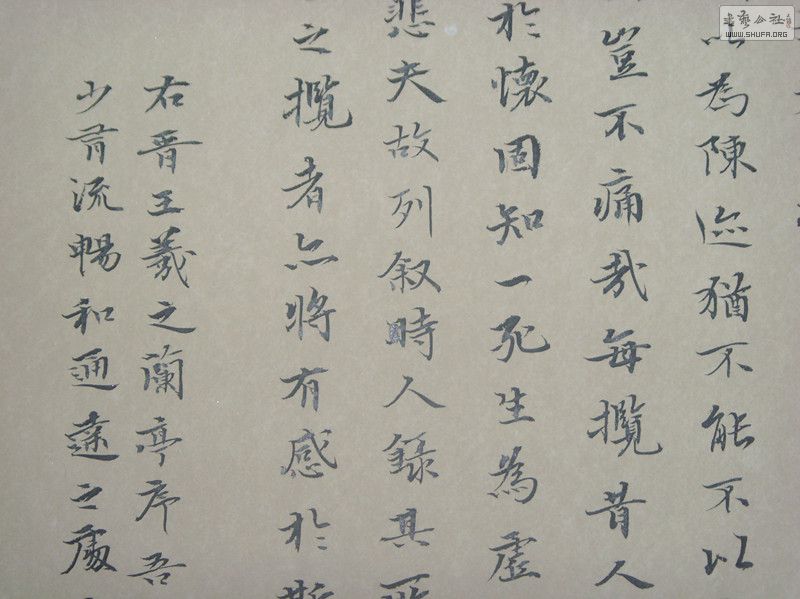 以為陳迹猶不能不以
豈不痛哉每攬昔人
於懷固知一死生為虛
悲夫故列叙時人錄其所
之攬者亦將有感於斯
右晉王羲之蘭亭序吾
少流暢和通達之處
書藝公社
WWW.SHUFA.ORG